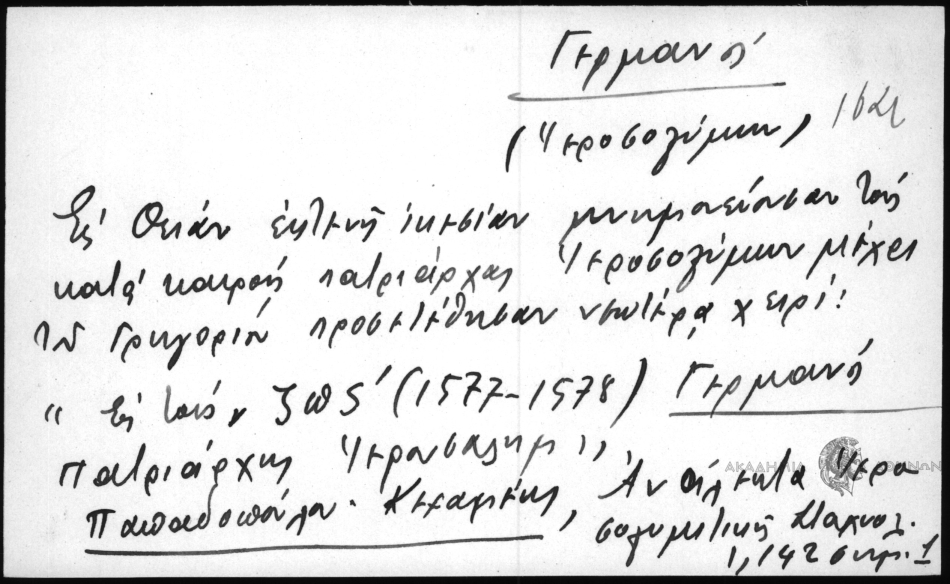 Γερμανός
(Ἱεροσολύμων)
Εἰς θείαν ἐκτενῆ ἱκεσίαν μνημονεύουσαν τούς
κατά καιρούς πατριάρχας Ἱεροσολύμων μέχρι
τοῦ Γρηγορίου προσετέθησαν νεωτέρᾳ χειρί:
" Εἰς τούς ζπς΄ (1577-1578) Γερμανός
πατριάρχης Ἱερουσαλημ",
Παπαδοπούλου - Κεραμέως, Ἀνάλεκτα Ἱερο
σολυμιτικῆς Σταχυολ.
1, 142 σημ. 1
ΑΚΑΔΗΜΙΑ ΑΘΗΝΩΝ